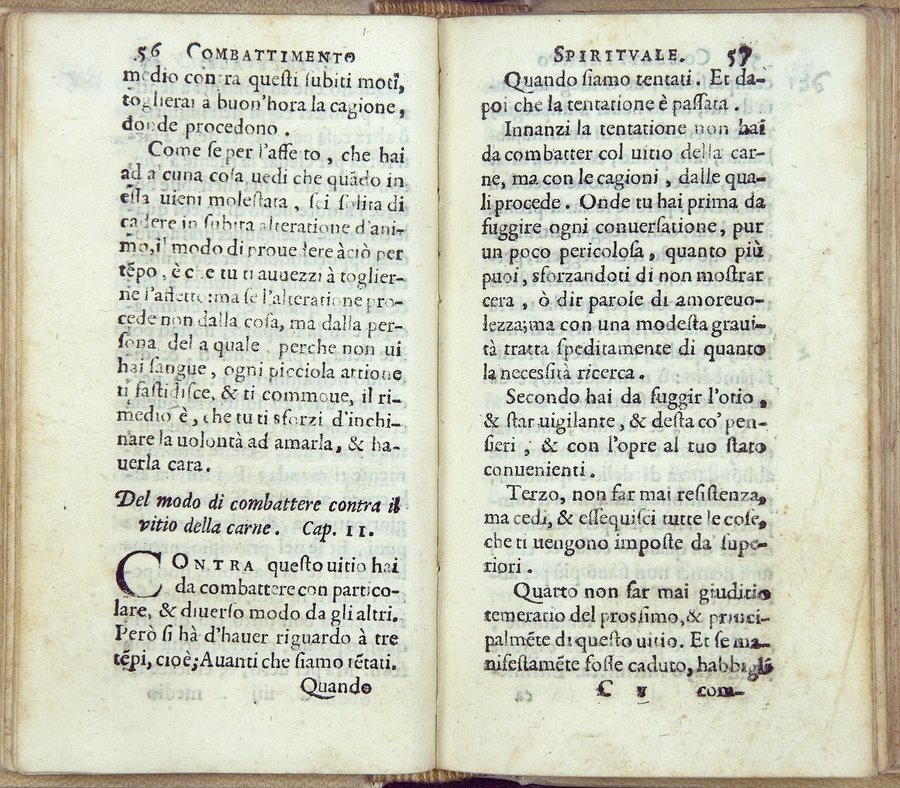 56 COMBATTIMENTO
medio contra questi subiti moti,
toglierai à buon'hora la cagione,
donde procedono.
Come se per l'affe to, che hai
ad a cuna cosa uedi che quãdo in
essa uieni molestata, sei solita di
cadere in subita alteratione d'ani-
mo, il modo di proue lere àciò per
tẽpo, è che tu ti auuezzi à toglier-
ne l'affetto: ma se l'alteratione pro-
cede non dalla cosa, ma dalla per-
sona del a quale, perche non ui
hai sangue, ogni picciola attione
ti fastidisce, & ti commoue, il ri-
medio è, che tu ti sforzi d'inchi-
nare la uolontà ad amarla, & ha-
uerla cara.
Del modo di combattere contra il
vitio della carne. Cap. 11.
CONTRA questo uitio hai
da combattere con partico-
lare, & diuerso modo da gli altri.
Però si hà d'hauer riguardo à tre
tẽpi, cioè; Auanti che siamo tẽtati.
Quando
SPIRITVALE. 57
Quando siamo tentati. Et da-
poi che la tentatione è passata.
Innanzi la tentatione non hai
da combatter col uitio della car-
ne, ma con le cagioni, dalle qua-
li procede. Onde tu hai prima da
fuggire ogni conuersatione, pur
un poco pericolosa, quanto più
puoi, sforzandoti di non mostrar
cera, ò dir parole di amoreuo-
lezza; ma con una modesta graui-
tà tratta speditamente di quanto
la necessità ricerca.
Secondo hai da fuggir l'otio,
& star uigilante, & desta co' pen-
sieri; & con l'opre al tuo stato
conuenienti.
Terzo, non far mai resistenza,
ma cedi, & essequisci tutte le cose,
che ti uengono imposte da supe-
riori.
Quarto non far mai giuditio
temeratio del prossimo, & princi-
palmẽte di questo uitio. Et se ma-
nifestamẽte fosse caduto, habbigli
C v com-